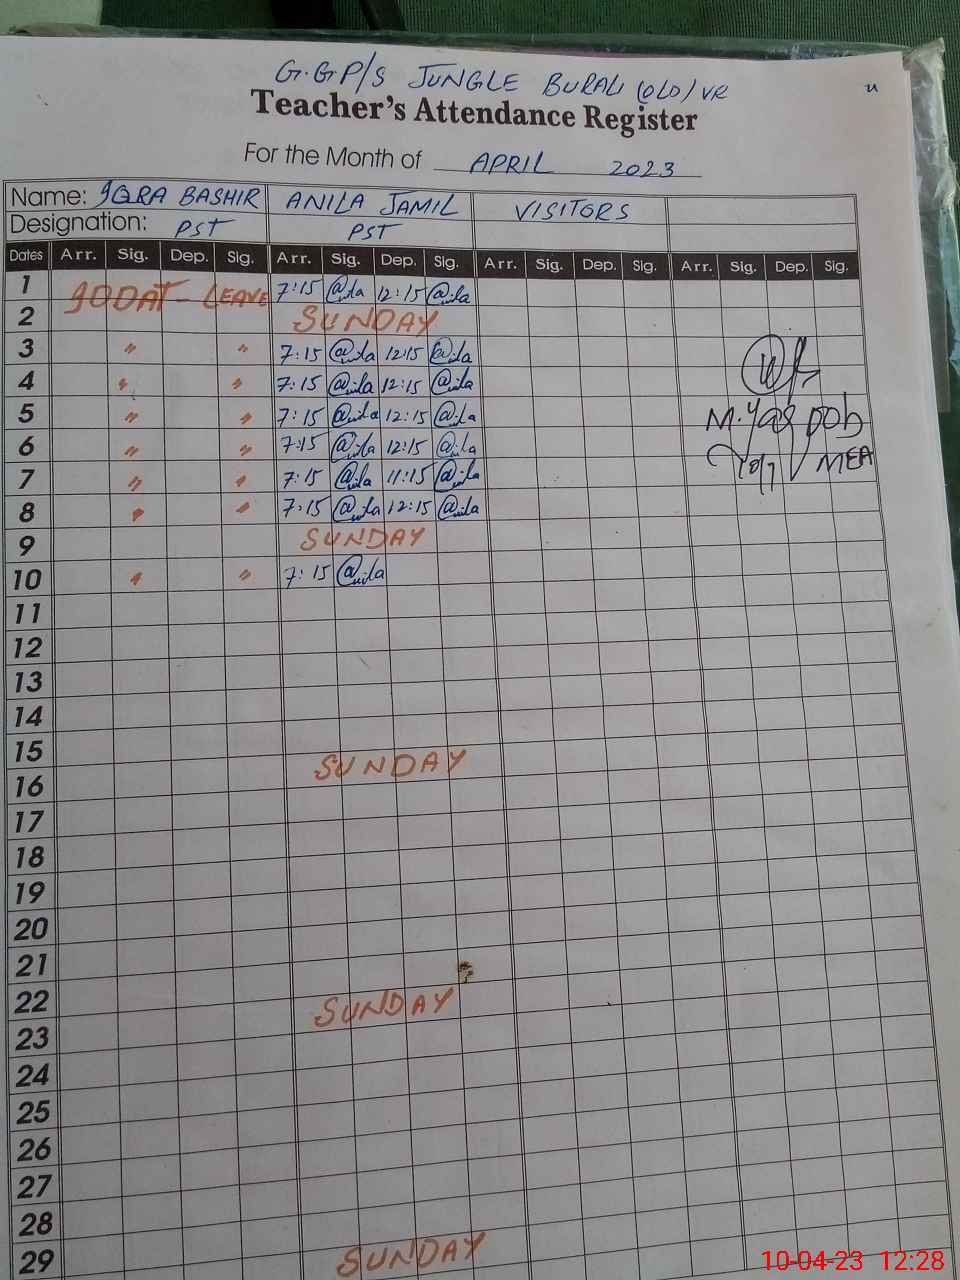 G.GP/S JUNGLE BURALI (OLD) VR
Teacher's Attendance Register
For the Month of APRIL 2023
Name: IQRA BASHIR ANILA JAMIL VISITORS
Designation: PST PST
Dates Arr. Sig. Dep. Sig. Arr. Sig. Dep. Sig. Arr. Sig. Dep. Sig. Arr. Sig. Dep. Sig.
1 90DAT - LEAVE 7:15 @nila 12:15 @nila
2 SUNDAY
3 " " 7:15 @nila 12:15 @nila
4 " " 7:15 @nila 12:15 @nila
5 " " 7:15 @nila 12:15 @nila
M.
6 " " 7:15 @nila 12:15 @nila
MEA
7 " " 7:15 @nila 11:15 @nila
8 " " 7:15 @nila 12:15 @nila
9 SUNDAY
10 " " 7:15 @nila
11
12
13
14
15
SUNDAY
16
17
18
19
20
21
22
SUNDAY
23
24
25
26
27
28
29 SUNDAY
10-04-23 12:28